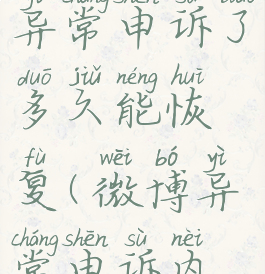 异常申诉了
duō jiǔ néng huī
多久能恢
fù wēi bó yì
复(微博异
cháng shēn sù nèi
常申诉内